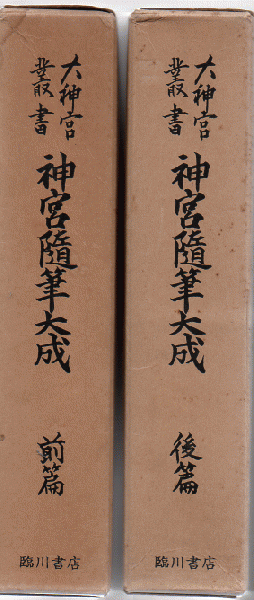 大神宮
叢書
神宮隨筆大成
前篇
臨川書店
大神宮
叢書
神宮隨筆大成
後篇
臨川書店